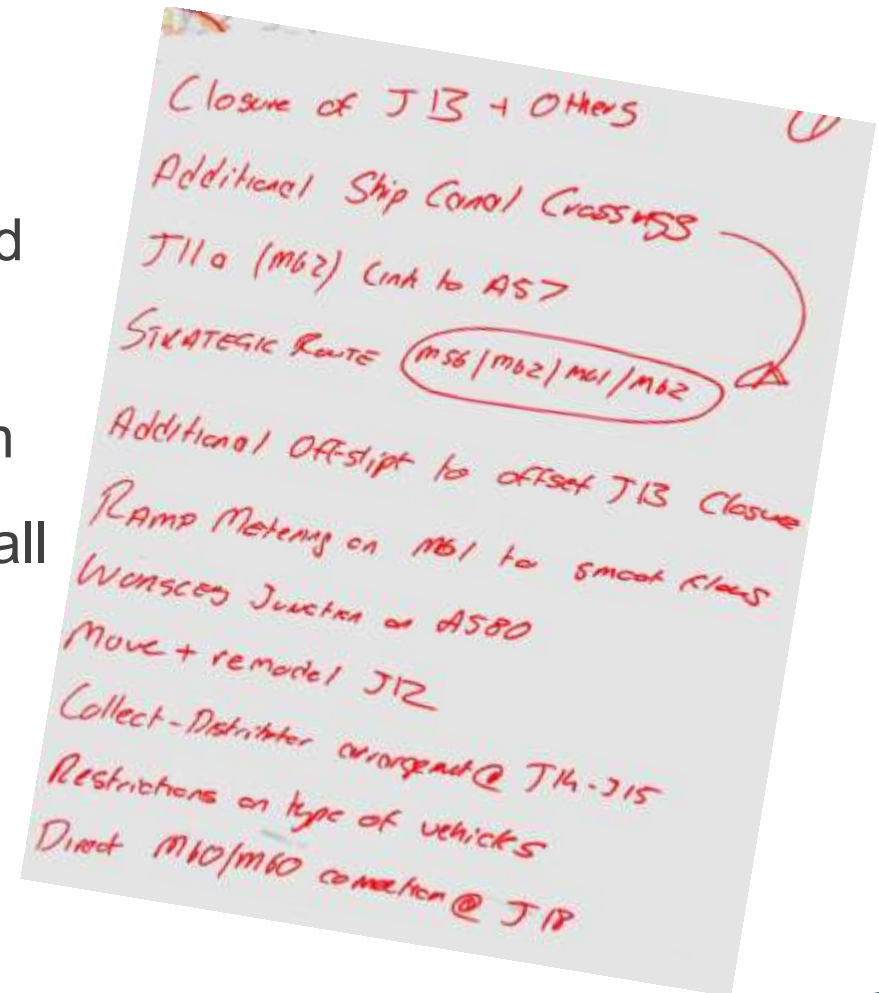 Closure of J13 + Others
Additional Ship Canal Crossings
d
J11a (M62) Link to A57
STRATEGIC ROUTE M56/M62/M61/M62
Additional Off-slips to offset J13 Closure
n
Ramp Metering on M61 to smooth flows
all
Junction on A580
Move + remodel J12
Collect-Distributer arrangement @ J14-J15
Restrictions on type of vehicles
Direct M60/M60 connection @ J18